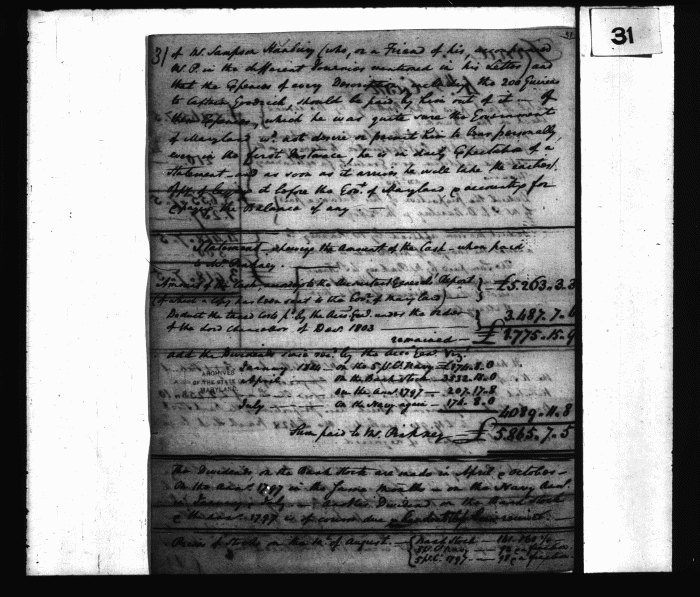 31
31
of Mr. Sampson Hanbury (who, or a Friend of his, accompanied
Mr. P. in the different Journies mentioned in his Letter) and
that the Expenses of every Description including the 200 Guineas
to Captain Goodrich, should be paid by him out of it — Of
these Expenses, which he was quite sure the Government
of Maryland wd. not desire or permit him to bear personally,
even in the first Instance, he is in daily Expectation of a
Statement and as soon as it arrives he will take the earliest
Oppy. of laying it before the Govt. of Maryland & accountg. for
the Balance if any —
Statement shewing the Amount of the Cash when paid
to Mr. Pinkney.
Amount of the Cash according to the Accountant General's Report
(of which a Copy has been sent to the Govt. of Maryland)
£5263.3.3
Deduct the taxed Costs pd. by the Acct. Genl. under the Order
of the Lord Chancellor of Decr. 1803
3487.7.0
remained — £1775.15.9
add the Dividends since recd. by the Acct. Genl. Viz.
January 1804 on the 5 pCt. Navy — £174.8.0
April on the Bank Stock — 3532
on the Ann. 1797 — 207.17.8
July on the Navy again — 174.8.0
4089.11.8
Sum paid to Mr. Pinkney — £5865.7.5
ARCHIVES
OF THE STATE
MARYLAND
The Dividends on the Bank Stock are made in April & October —
On the Ann. 1797 in the same months — on the Navy Ann.
in January & July — another Dividend on the Bank Stock
& the Ann. 1797 is of course due
Prices of Stocks on the of August. — Bank Stock — 161.
5 pCt. Navy — 96 a fraction
5 pCt. 1797 — 98 a fraction